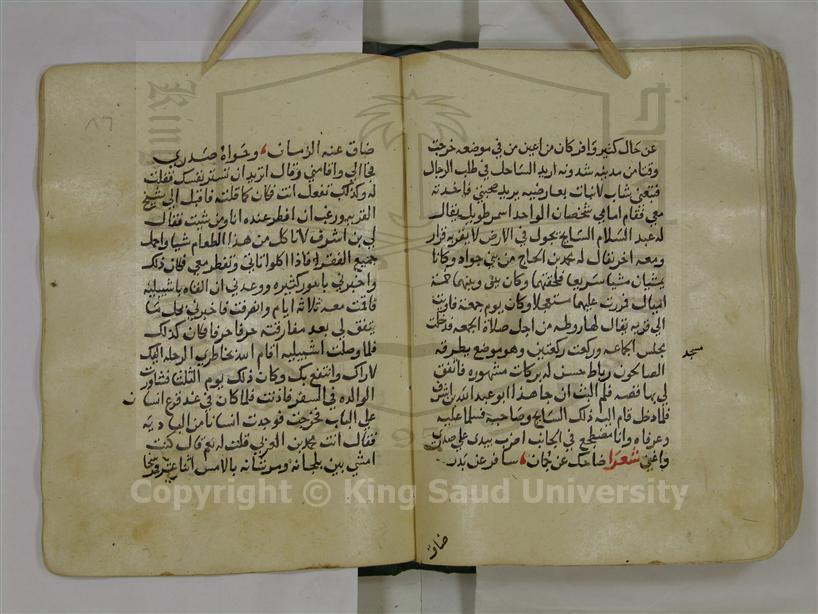 عن حال كثير وافر كان من اعين من في موضعه خرجت
وقتا من مدينه شدونه اريد الساحل في طلب الرجال
فتبعني شاب لا نبات بعارضيه يريد صحبتي فاخذته
معي فقام امامي شخصان الواحد اسمر طويل يقال
له عبد السلام السايح يجول في الارض لا يقر به قرار
ومعه اخر يقال له محمد بن الحاج من بني جواد وكانا
يمشيان مشيا سريعا فلحقتهما وكان بيني وبينهما خمسة
اميال فررت عليهما مستعجلا وكان يوم جمعة فاويت
الي قريه يقال لها روطه من اجل صلاة الجمعه فدخلت
مسجد
بجلس الجماعه وركعت ركعتين وهو موضع يطرقه
الصالحون رباط حسن له بركات مشهوره فاتفق
لي بها قصه فلم البث ان جا هذا ابو عبد الله بن اشرف
فلما دخل قام اليه ذلك السايح وصاحبه فسلما عليه
وعرفاه وانا مضطجع في الجانب اضرب بيدي علي صدري
واغني شعرا ضاحك عن جمان سافر عن بدر
ضاق
٨٦
ضاق عنه الزمان وحواه صدري
فجا الي واقامني وقال اتريد ان تستر نفسك فقلت
له وكذلك تفعل انت فكان كما قلته فاقبل الي شيخ
القريه ورغب ان افطر عنده انا ومن شيت فقال
لي بن اشرف لا تاكل من هذا الطعام شيا واجمل
جميع الفقرا فاذا اكلوا تاتي وتفطر معي فكان ذلك
واخبرني بامور كثيره ووعدني ان القاه باشبيليه
فاقمت معه ثلاثة ايام وانصرفت فاخبرني بكل ما
يتفق لي بعد مفارقته حرفا حرفا فكان كذلك
فلما وصلت اشبيليه اقام الله بخاطري الرحله اليك
لاراك وانتفع بك وكان ذلك يوم الثلثا فشاورت
الوالده في السفر فاذنت فلما كان في غد قرع انسان
علي الباب فخرجت فوجدت انسانا من الباديه
فقال انت محمد بن العربي قلت له نعم قال كنت
امشي بين بلجانه ومرشانه بالامس اثنا عشر فرسخا
Copyright © King Saud University